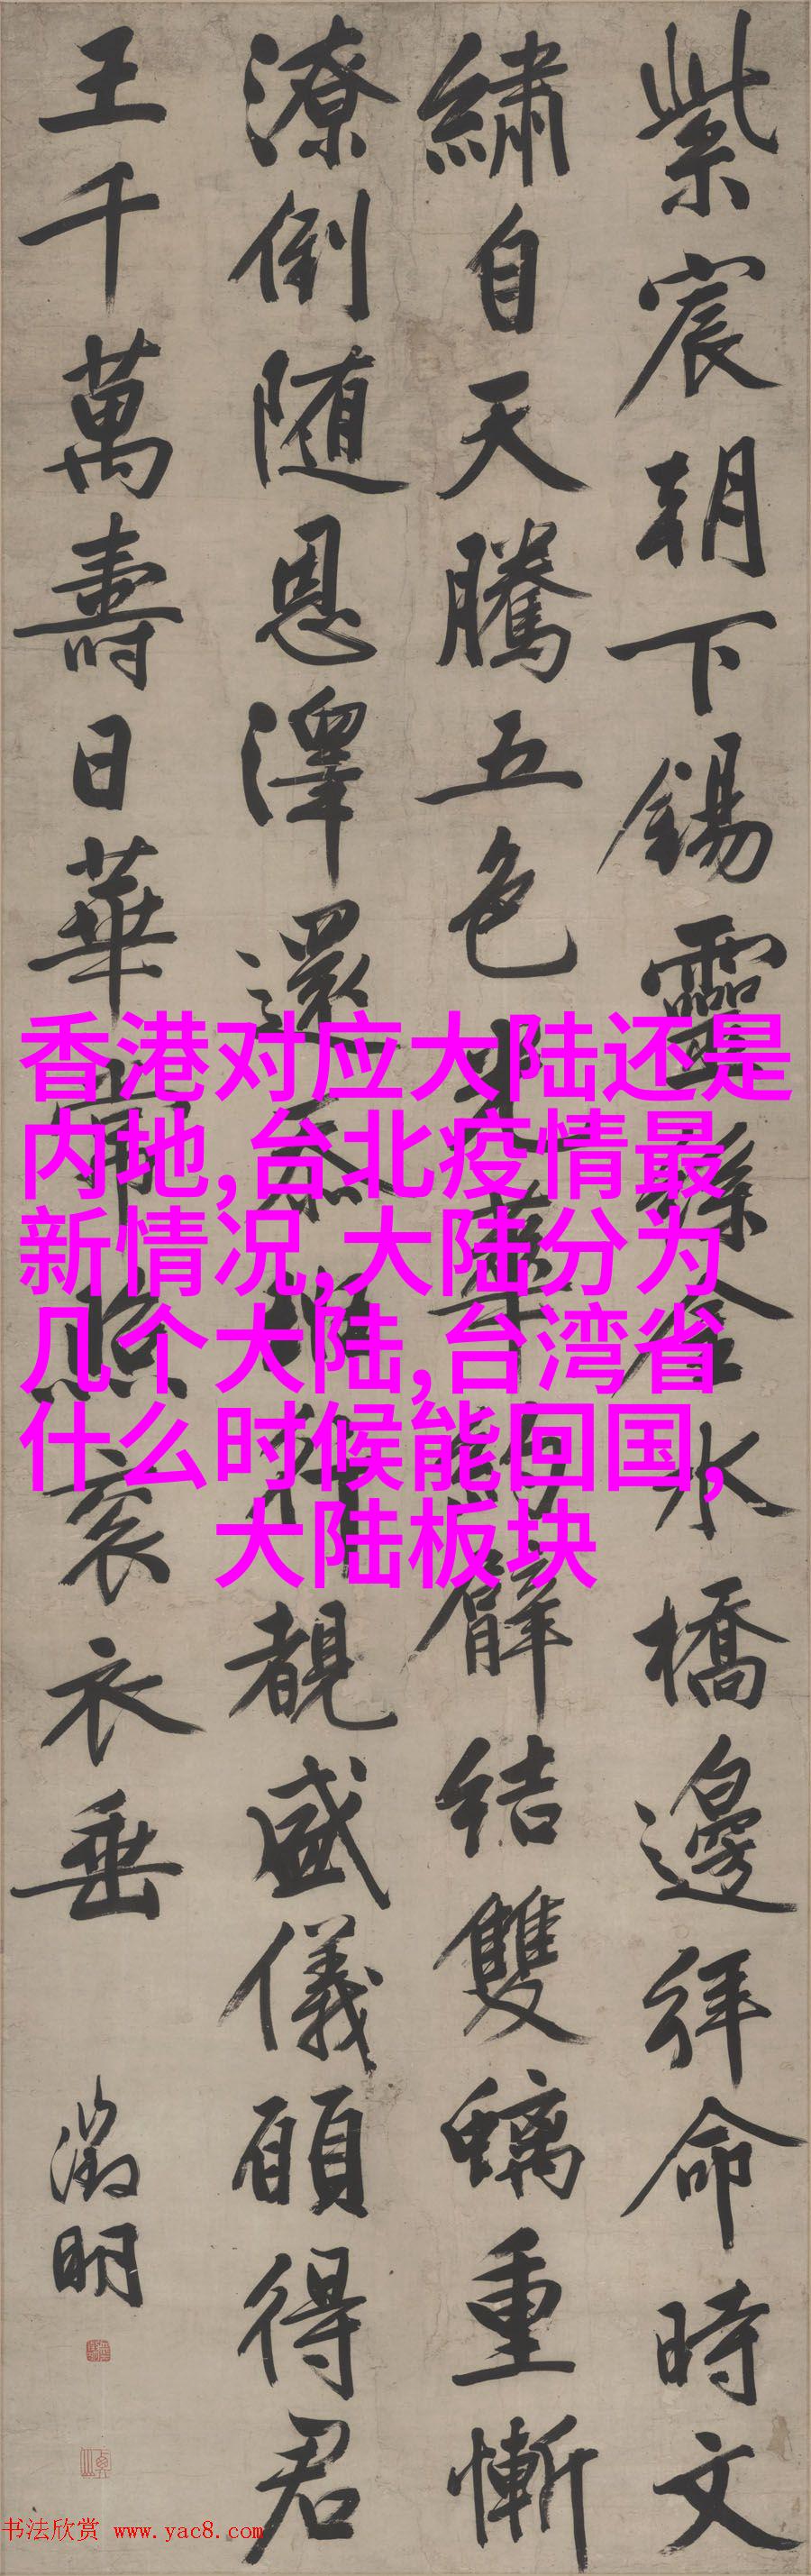 紫宸朝下錫靈絲金水橋邊拜命時文
繡自天騰五色光華約臂結雙螭重慚
潦倒随恩澤還忝班行覩盛儀願得君
王千萬壽日華常照衮衣垂
徵明
香港对应大陆还是
内地,台北疫情最
新情况,大陆分为
几个大陆,台湾省
什么时候能回国,
大陆板块
书法欣赏 www.yac8.com